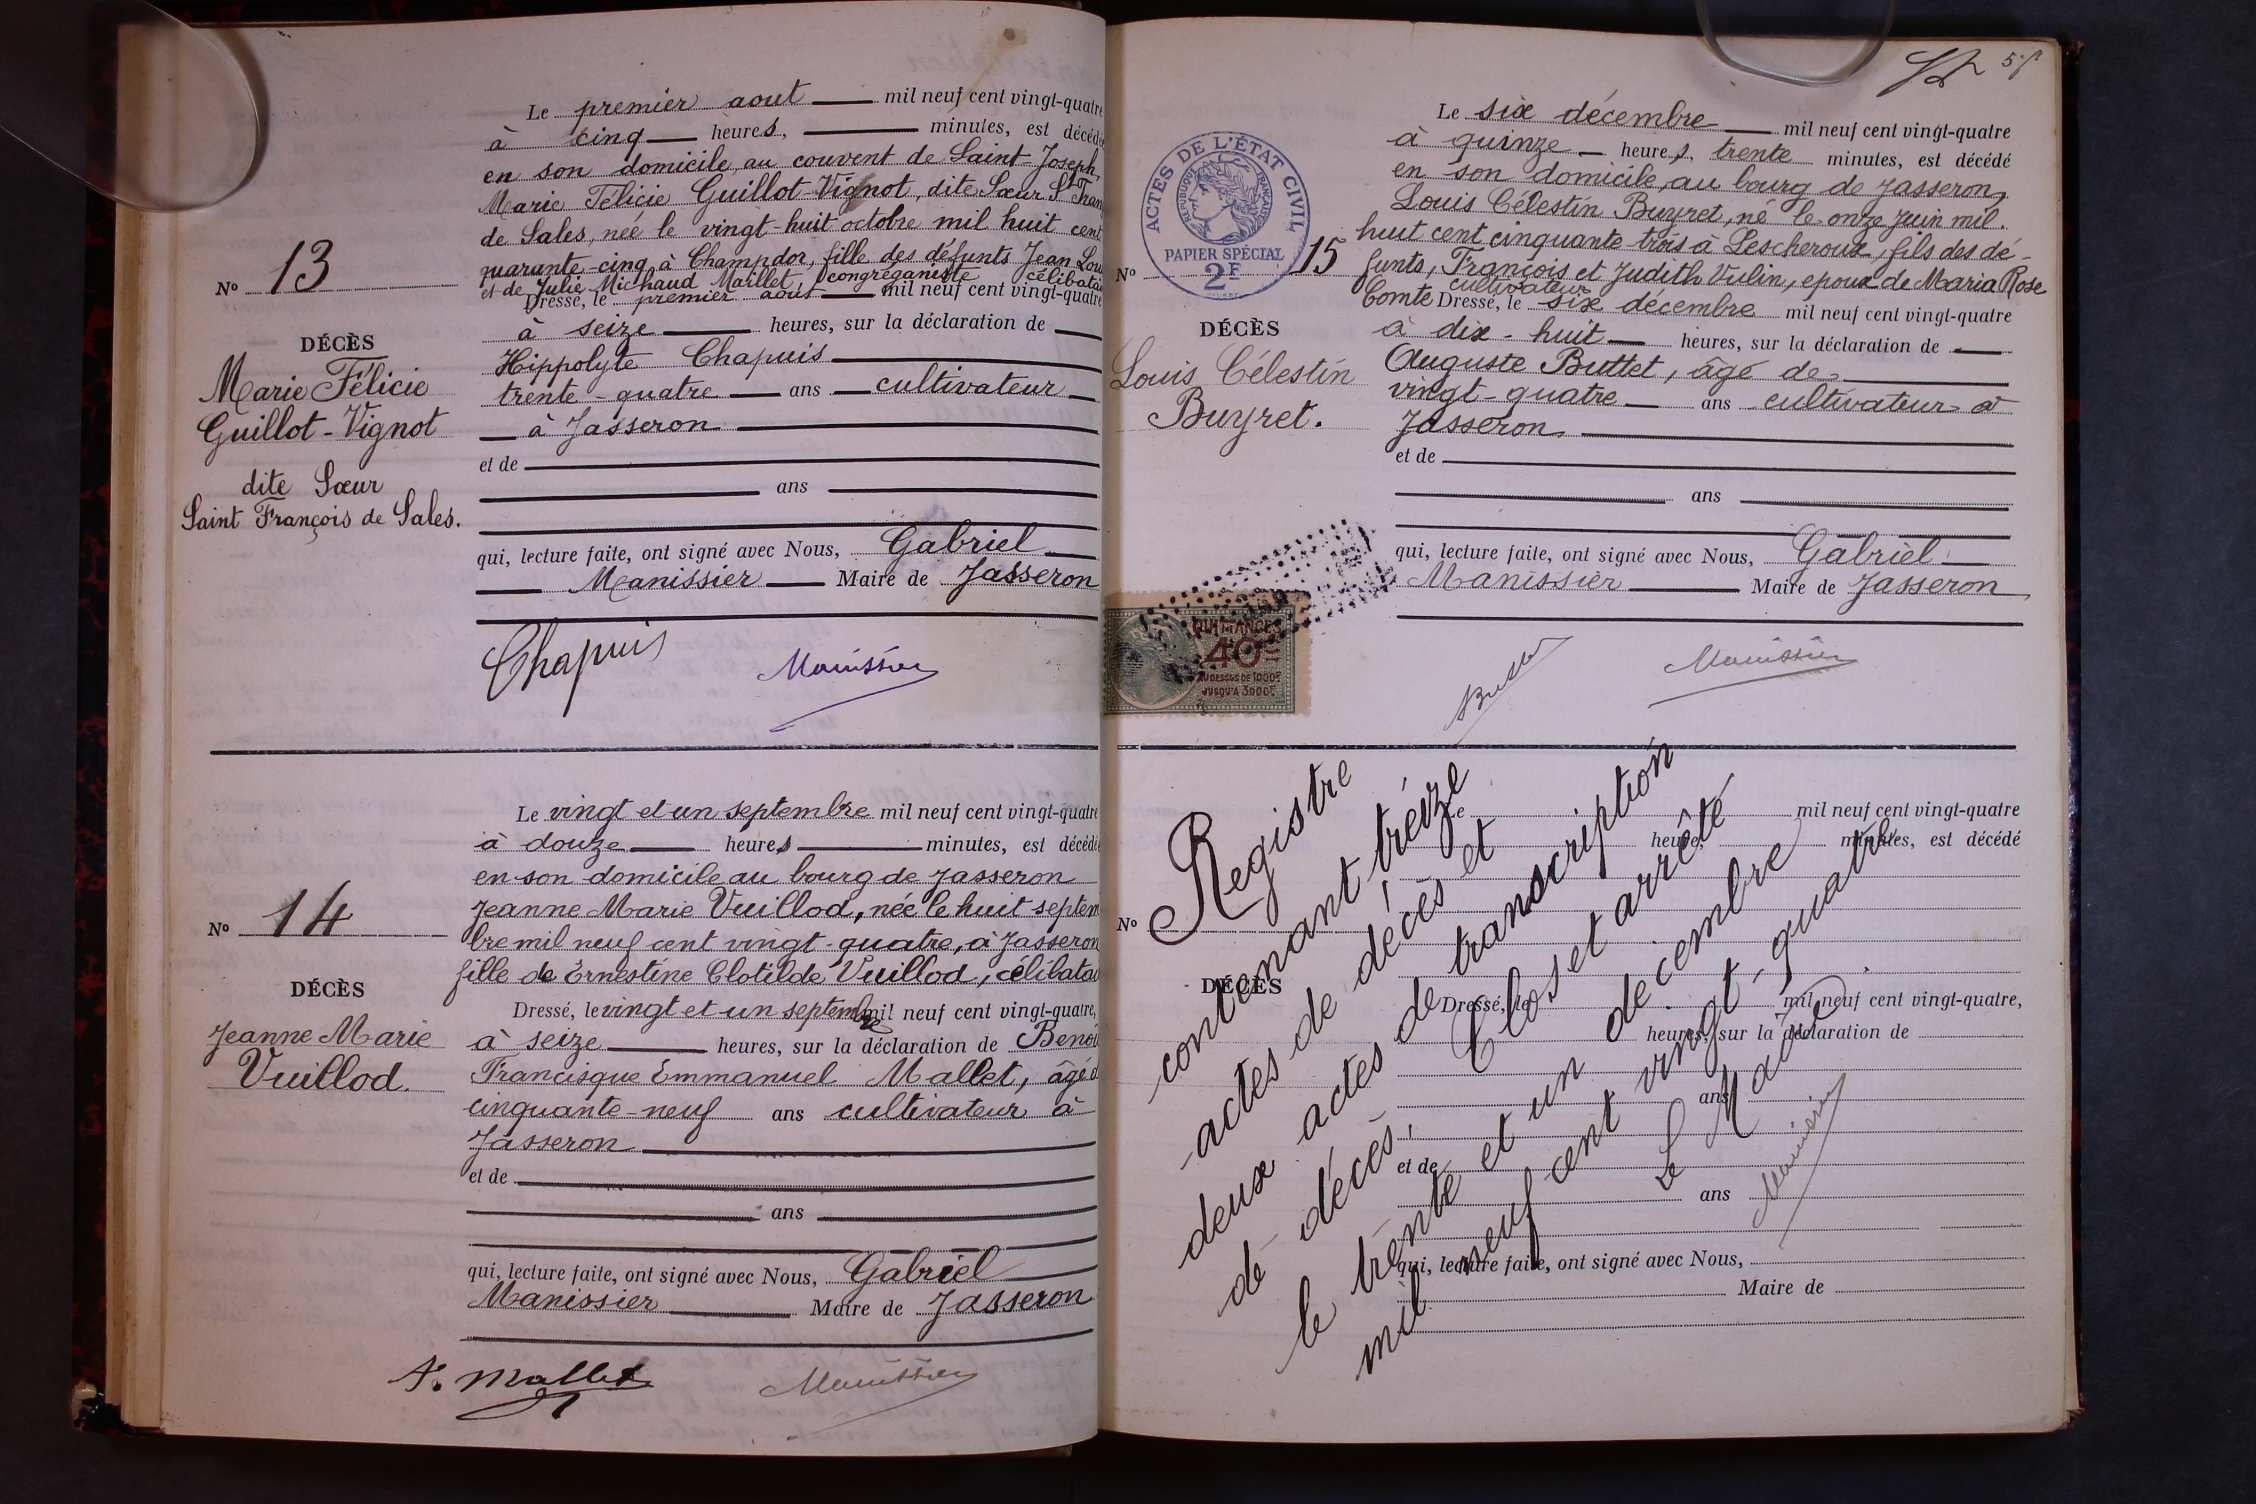 Le premier aout mil neuf cent vingt-quatre
à cinq heures, minutes, est décédée
en son domicile, au couvent de Saint Joseph,
Marie Félicie Guillot-Vignot, dite Sœur St Fran
de Sales, née le vingt-huit octobre mil huit cent
quarante-cinq à Champdor, fille des défunts Jean Lou
et de Julie Michaud Maillet, congréganiste célibatai
No 13
DÉCÈS
Marie Félicie
Guillot-Vignot
dite Sœur
Saint François de Sales.
Dressé, le premier aout mil neuf cent vingt-quatre
à seize heures, sur la déclaration de
Hippolyte Chapuis
trente-quatre ans cultivateur
à Jasseron
et de
ans
qui, lecture faite, ont signé avec Nous, Gabriel
Manissier Maire de Jasseron
Chapuis Manissier
Le vingt et un septembre mil neuf cent vingt-quatre
à douze heures minutes, est décédée
en son domicile au bourg de Jasseron
Jeanne Marie Vuillod, née le huit septem
bre mil neuf cent vingt-quatre, à Jasseron
fille de Ernestine Clotilde Vuillod, célibatai
No 14
DÉCÈS
Jeanne Marie
Vuillod.
Dressé, le vingt et un septembre mil neuf cent vingt-quatre,
à seize heures, sur la déclaration de Benoi
Francisque Emmanuel Mallet, âgé d
cinquante-neuf ans cultivateur à
Jasseron
et de
ans
qui, lecture faite, ont signé avec Nous, Gabriel
Manissier Maire de Jasseron
Mallet Manissier
ACTES DE L'ÉTAT CIVIL
RÉPUBLIQUE FRANÇAISE
PAPIER SPÉCIAL
2F
Le six décembre mil neuf cent vingt-quatre
à quinze heures, trente minutes, est décédé
en son domicile, au bourg de Jasseron,
Louis Célestin Buyret, né le onze juin mil.
huit cent cinquante trois à Lescheroux, fils des dé-
funts, François et Judith Vulin, epoux de Maria Rose
Comte cultivateur
No 15
DÉCÈS
Louis Célestin
Buyret.
Dressé, le six décembre mil neuf cent vingt-quatre
à dix-huit heures, sur la déclaration de
Auguste Buttet, âgé de
vingt-quatre ans cultivateur à
Jasseron
et de
ans
qui, lecture faite, ont signé avec Nous, Gabriel
Manissier Maire de Jasseron
QUITTANCES
40c
AU DESSUS DE 1000F
JUSQU'A 3000F
Manissier
Le mil neuf cent vingt-quatre
heures, minutes, est décédé
No
DÉCÈS
Dressé, le mil neuf cent vingt-quatre,
heures, sur la déclaration de
ans
et de
ans
qui, lecture faite, ont signé avec Nous,
Maire de
Registre
contenant treize
actes de décès et
deux actes de transcription
de décès, Clos et arrêté
le trente et un décembre
mil neuf cent vingt-quatre
Le Maire
Manissier